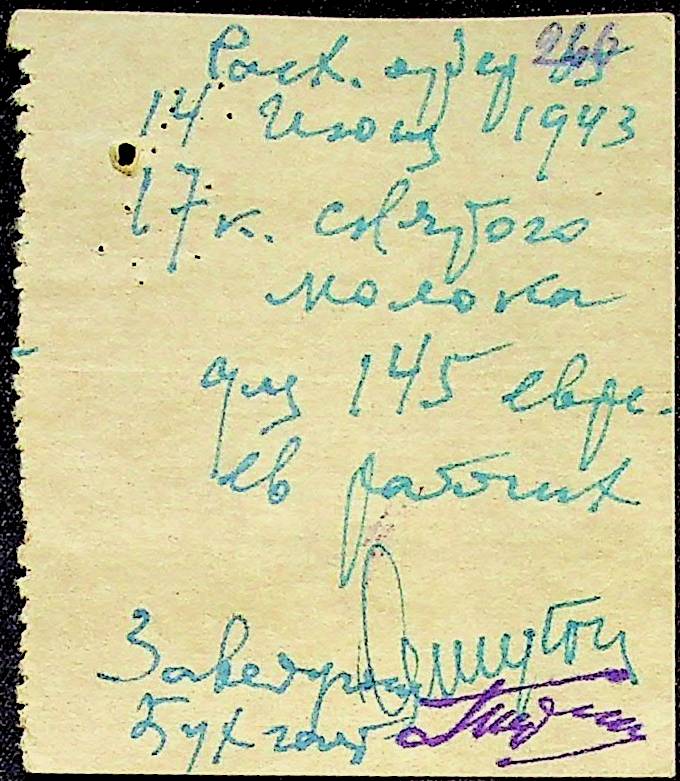 Расх. ордер
14 Июля 1943
17 к. снятого
молока
для 145 евре-
ев рабочих
Заведующ
Бухгалт